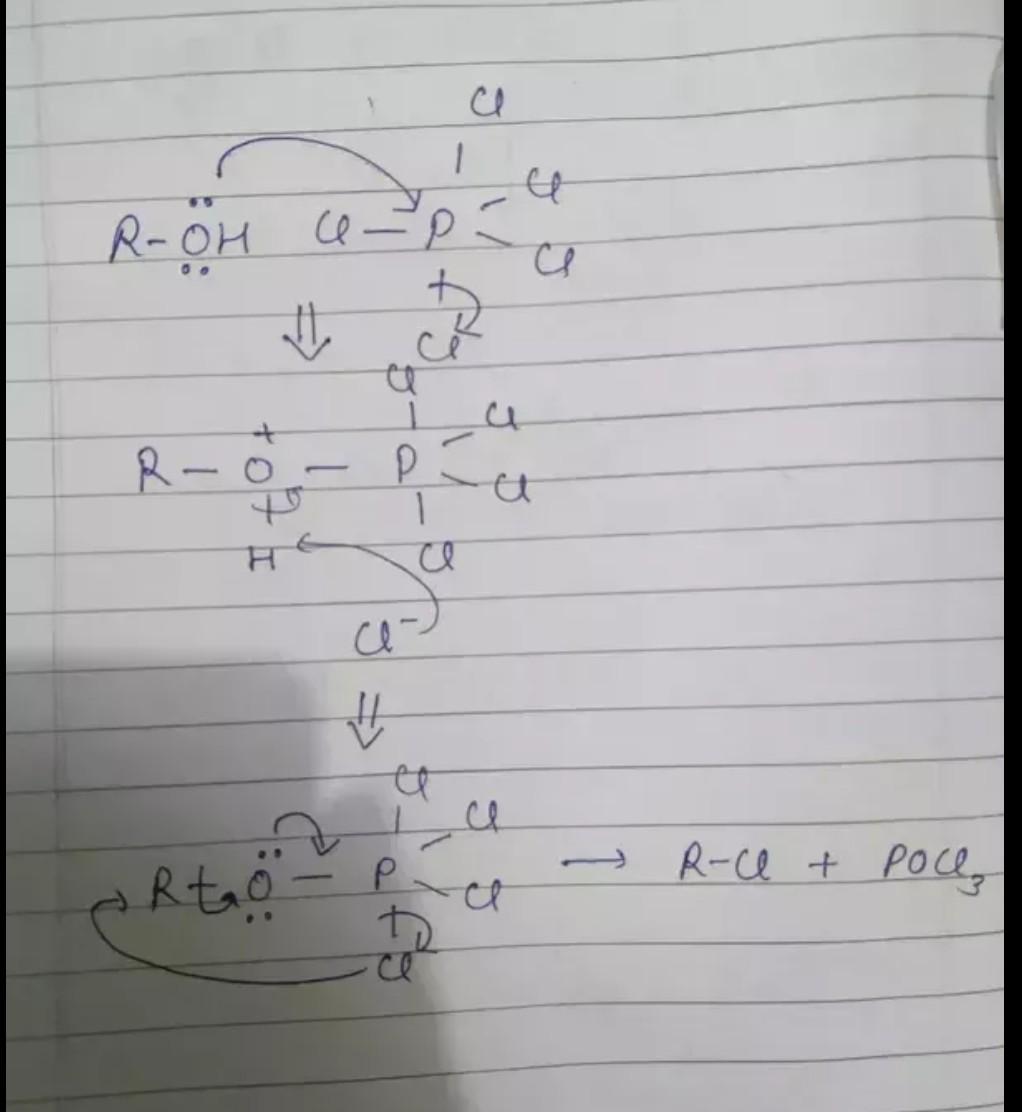 Cl
Cl
R-ÖH Cl-P
Cl
⇓
Cl
Cl
+
Cl
R-O-P
Cl
H
Cl
Cl⁻
⇓
Cl
Cl
R-Ö-P → R-Cl + POCl₃
Cl
Cl